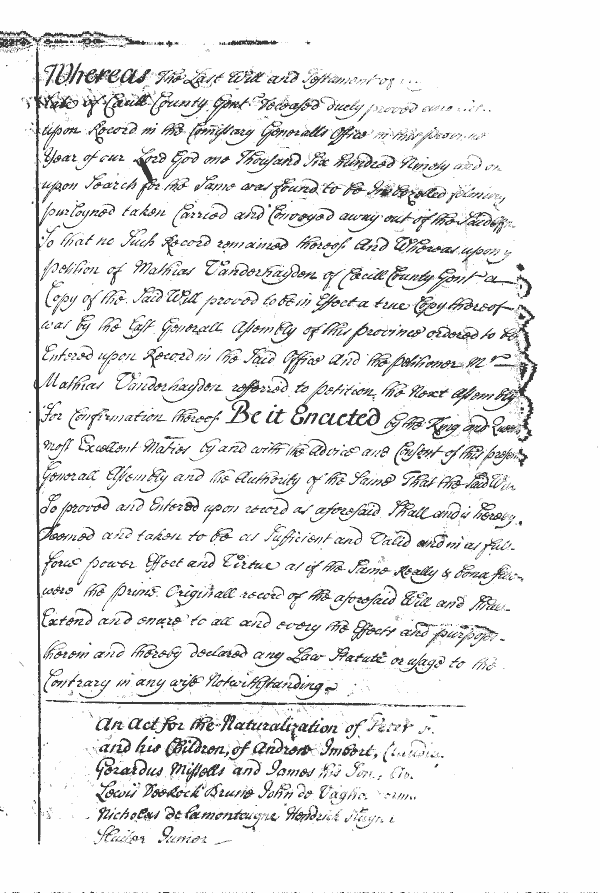 Whereas The Last Will and Testament of
of Cecill County Gent Deceased duely proved and
upon Record in the Comissary Generalls Office in this province
Year of our Lord God one Thousand Six hundred Ninety and on
upon Search for the Same was found to be
purloyned taken Carried and Conveyed away out of the Said Office
So that no Such Record remained thereof And Whereas upon y
petition of Mathias Vanderhayden of Cecill County Gent a
Copy of the Said Will proved to be in Effect a true Copy thereof
was by the Last Generall Assembly of this province ordered to be
Entered upon Record in the Said Office And the petitioner Mr
Mathias Vanderhayden referred to petition the Next Assembly
For Confirmation thereof Be it Enacted by the King and Queens
most Excellent Maties by and with the Advice and Consent of this present
Generall Assembly and the Authority of the Same That the Said Will
So proved and Entered upon record as aforesaid Shall and is hereby
Deemed and taken to be as Sufficient and Valid and in as full
force power Effect and Virtue as if the Same Really & bona fide
were the prime Originall record of the aforesaid Will and Shall
Extend and enure to all and every the Effects and purposes
herein and hereby declared any Law Statute or usage to the
Contrary in any wise Notwithstanding.
An Act for the Naturalization of Peter
and his Children, of Andrew Imbert,
Gerardus Missells and James his Son,
Lewis Deerock Bruno John de Vagha
Nicholas de la montaigne Hendrick
Sluiter Junior